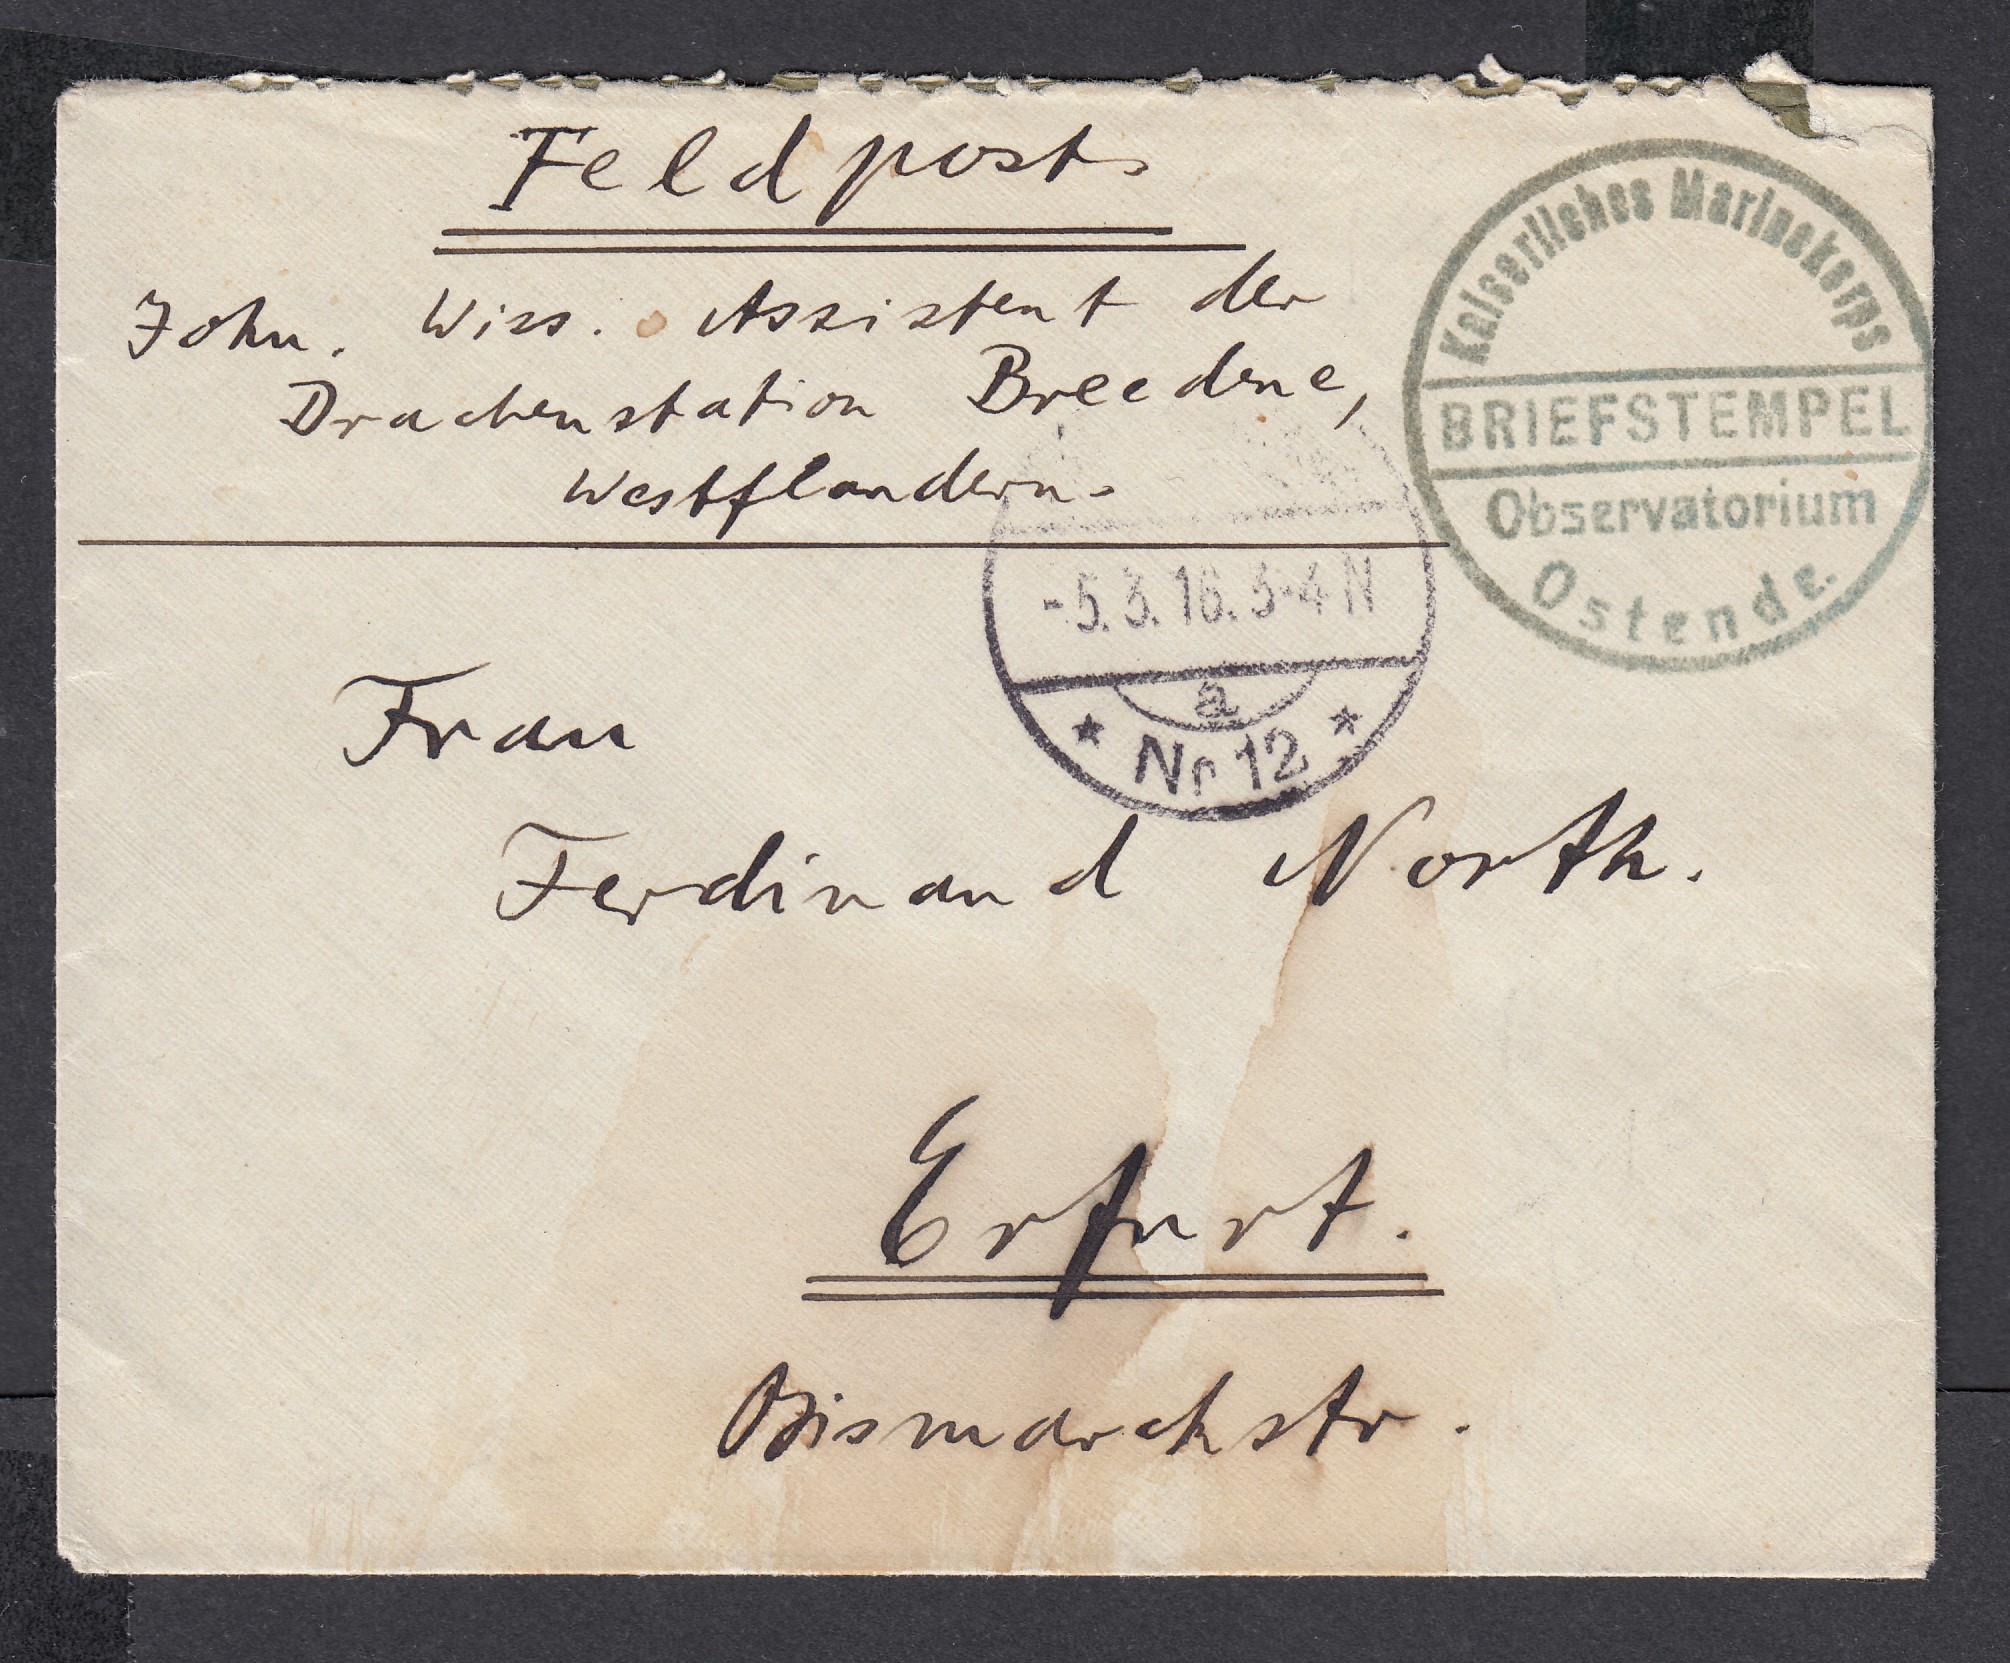 Feldpost.
John. Wiss. Assistent der
Drachenstation Breedene,
Westflandern.
Kaiserliches Marinekorps
BRIEFSTEMPEL
Observatorium
Ostende.
-5.3.16.3-4N
a
* Nr 12 *
Frau
Ferdinand North.
Erfurt.
Bismarckstr.